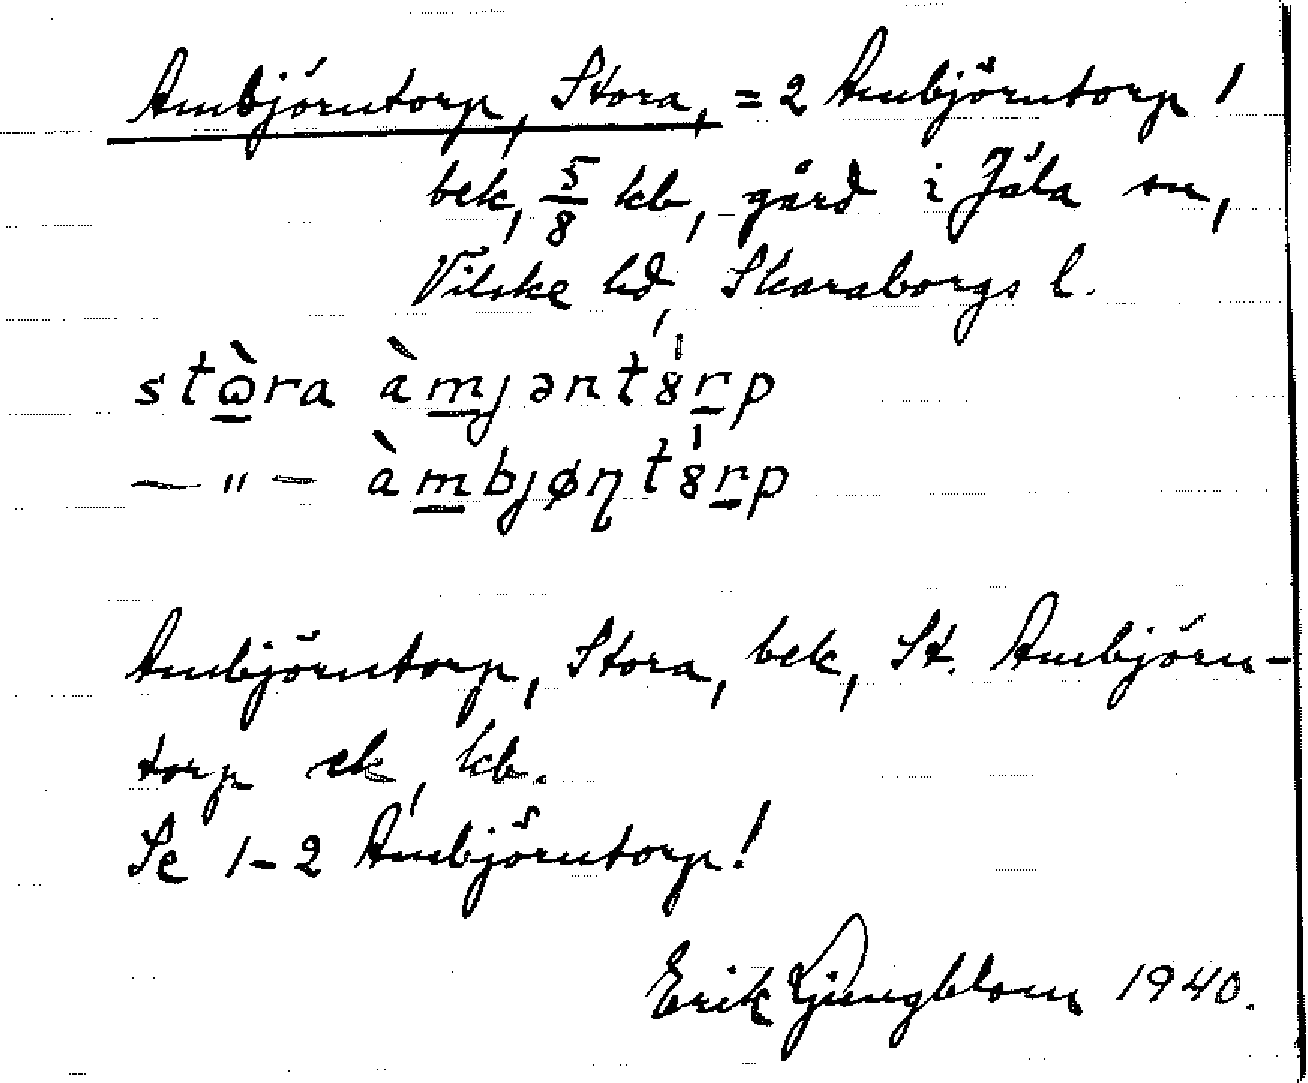 Ambjörntorp, Stora, = 2 Ambjörntorp!
bek, 5/8 kb, gård i Jäla sn,
Vilske hd, Skaraborgs l.
stɷ̀ra àmjəntȣ́rp
—"— àmbjøṇtȣ́rp
Ambjörntorp, Stora, bek, St. Ambjörn-
torp ek, kb.
Se 1-2 Ambjörntorp!
Erik Ljungblom 1940.